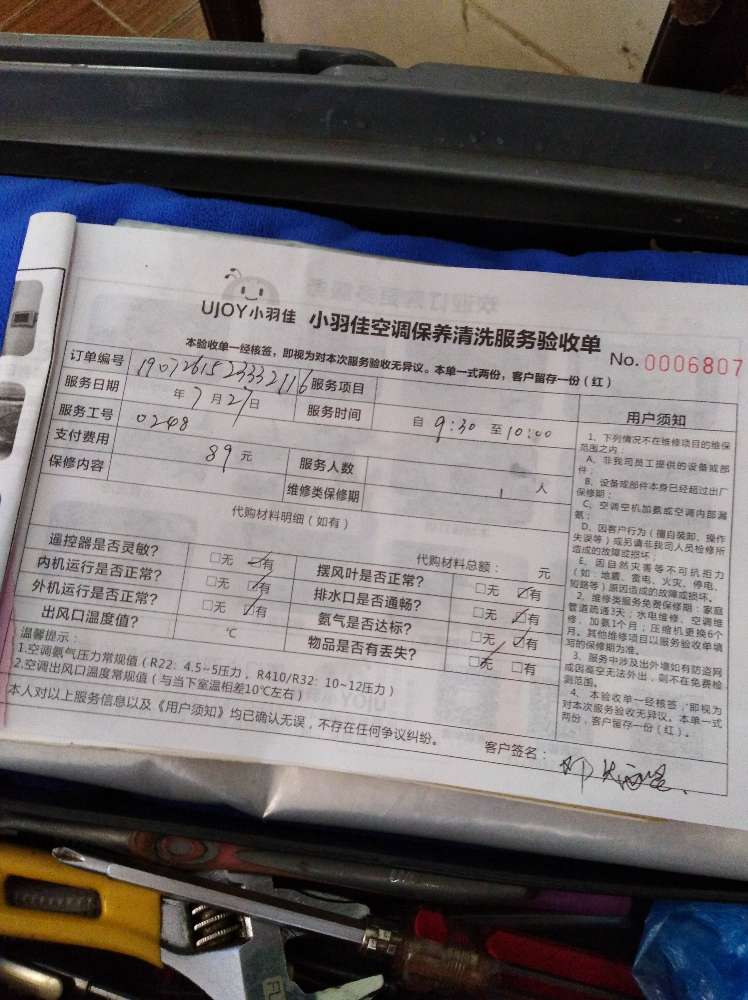 UJOY小羽佳 小羽佳空调保养清洗服务验收单
本验收单一经核签，即视为对本次服务验收无异议。本单一式两份，客户留存一份（红） No.0006807
订单编号 1907261523332116 服务项目
服务日期 年7月27日 服务时间 自9:30至10:00
服务工号 0248
支付费用 89元 服务人数 1人
保修内容 维修类保修期
代购材料明细（如有）
代购材料总额： 元
遥控器是否灵敏？ □无 ☑有 摆风叶是否正常？ □无 ☑有
内机运行是否正常？ □无 ☑有 排水口是否通畅？ □无 ☑有
外机运行是否正常？ □无 ☑有 氨气是否达标？ □无 ☑有
出风口温度值？ ℃ 物品是否有丢失？ ☑无 □有
温馨提示：
1.空调氨气压力常规值（R22：4.5~5压力，R410/R32：10~12压力）
2.空调出风口温度常规值（与当下室温相差10℃左右）
本人对以上服务信息以及《用户须知》均已确认无误，不存在任何争议纠纷。
客户签名：
用户须知
1、下列情况不在维修项目的维保
范围之内：
A、非我司员工提供的设备或部
件；
B、设备或部件本身已经超过出厂
保修期；
C、空调空机加氨或空调内部漏
氨；
D、因客户行为（擅自装卸、操作
失误等）或另请非我司人员检修所
造成的故障或损坏；
E、因自然灾害等不可抗拒力
（如：地震、雷电、火灾、停电、
短路等）原因造成的故障或损坏。
2、维修类服务免费保修期：家庭
管道疏通3天；水电维修、空调维
修、加氨1个月；压缩机更换6个
月。其他维修项目以服务验收单填
写的保修期为准。
3、服务中涉及出外墙如有防盗网
或因高空无法外出，则不在免费检
测范围。
4、本验收单一经核签，即视为
对本次服务验收无异议。本单一式
两份，客户留存一份（红）。